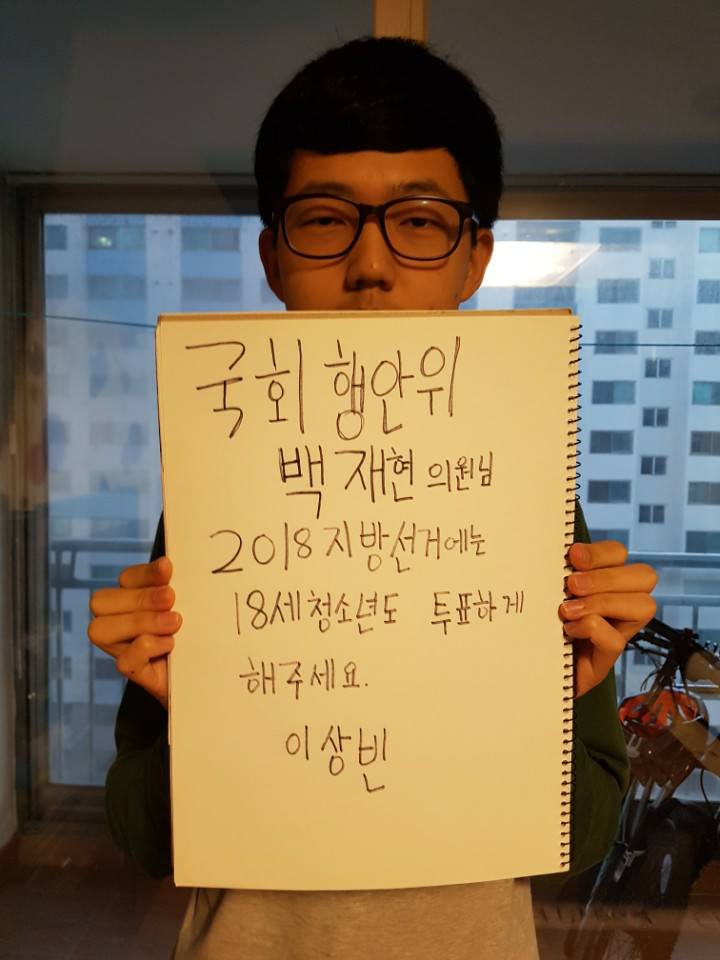 국회 행안위
백재현 의원님
2018 지방선거에는
18세 청소년도 투표하게
해주세요.
이상빈